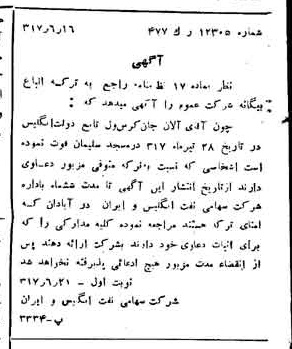 شماره ۱۲۳۰۵ ر ك ۴۷۷ ۳۱۷/۶/۱۶
آگهی
نظر بماده ۱۷ نظامنامه راجع به تركه اتباع
بیگانه شركت عموم را آگهی میدهد كه :
چون آقای آلان جان كرسول تابع دولت انگلیس
در تاریخ ۲۸ تیرماه ۳۱۷ در مسجد سلیمان فوت نموده
است اشخاصی كه نسبت بتركه متوفی مزبور دعاوی
دارند از تاریخ انتشار این آگهی تا مدت ششماه باداره
شركت سهامی نفت انگلیس و ایران در آبادان كه
امنای تركه هستند مراجعه نموده كلیه مداركی را كه
برای اثبات دعاوی خود دارند بشركت ارائه دهند پس
از انقضاء مدت مزبور هیچ ادعائی پذیرفته نخواهد شد
نوبت اول - ۳۱۷/۶/۲۱
شركت سهامی نفت انگلیس و ایران
پ-۳۳۳۴